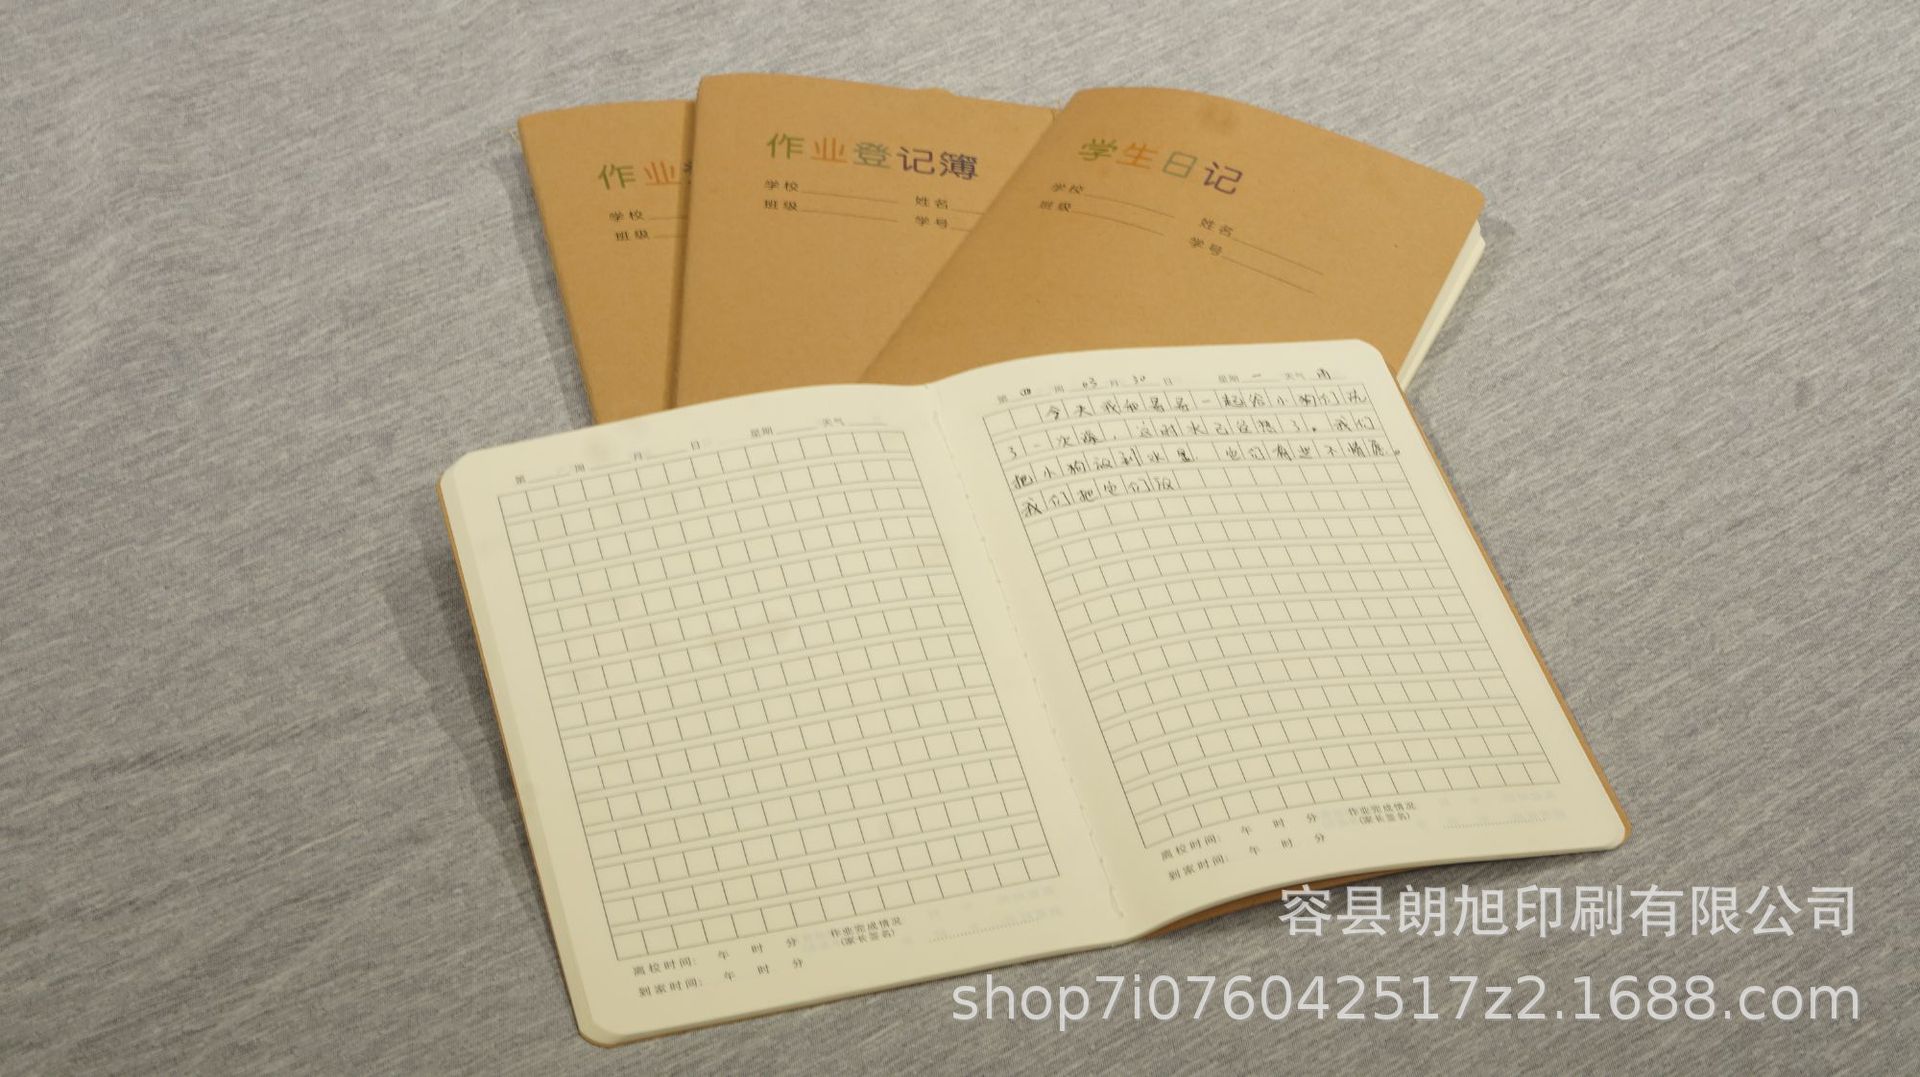 作业
学校
班级
作业登记簿
学校 姓名
班级 学号
学生日记
学校 姓名
班级 学号
第 周 月 日 星期 天气
离校时间: 午 时 分 作业完成情况
(家长签名)
到家时间: 午 时 分
第 四 周 03 月 30 日 星期 一 天气 雨
今天我和 一起给小狗们洗
了一次澡,这时水已 热了。我们
把小狗放到水里 它们有些不情愿。
我们把它们放
离校时间: 午 时 分 作业完成情况
(家长签名)
到家时间: 午 时 分
容县朗旭印刷有限公司
shop7i076042517z2.1688.com